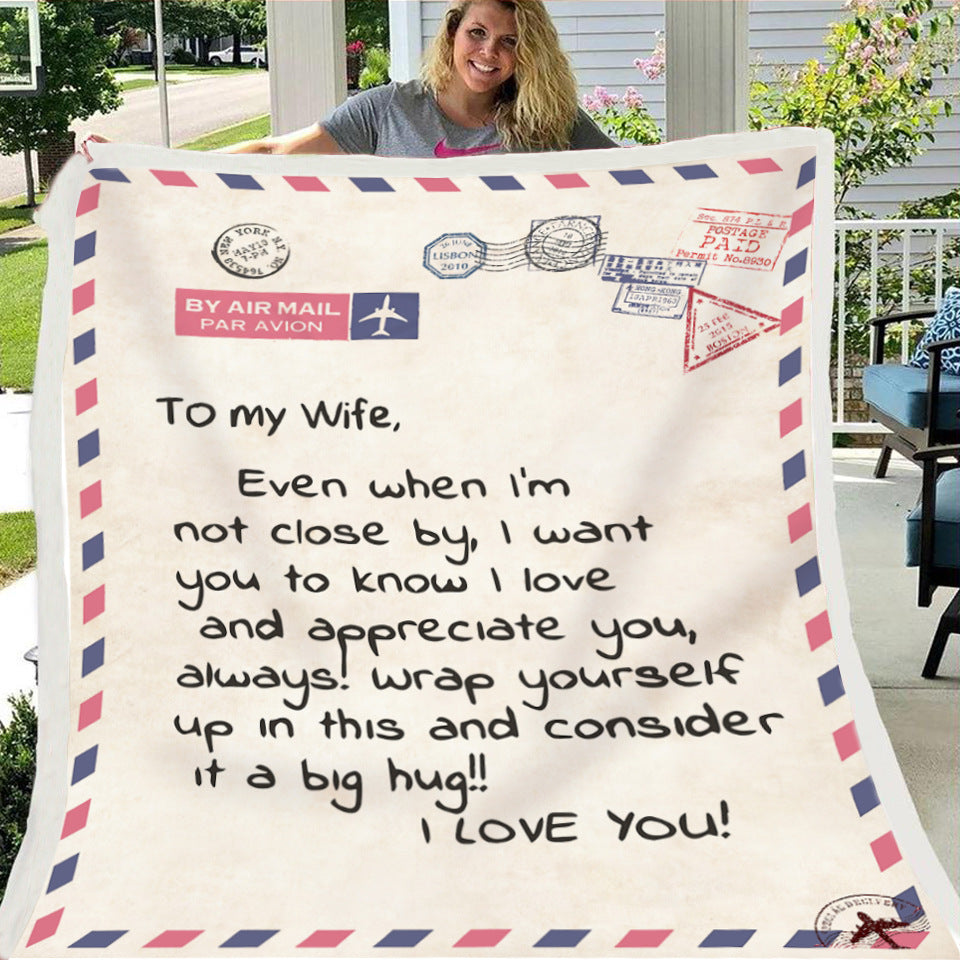 NEW YORK N.Y.
MAY 19
7-PM
NO. 764539
26 JUNE
LISBON
2010
Sec. 874 P.L & R
POSTAGE
PAID
Permit No.8930
HONG-KONG
23 FEB
2015
BOSTON
BY AIR MAIL
PAR AVION
To my Wife,
Even when I'm
not close by, I want
you to know I love
and appreciate you,
always! Wrap yourself
up in this and consider
it a big hug!!
I LOVE YOU!
SPECIAL DELIVERY